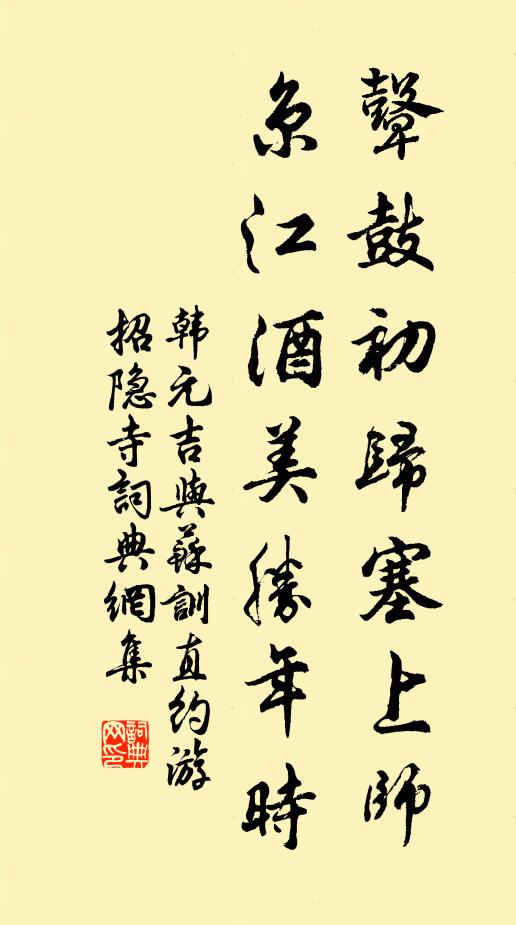 鼙鼓初歸塞上師
京江酒美勝年時
韩元吉與蘇訓直约游
招隐寺詞典網集
詞典网印